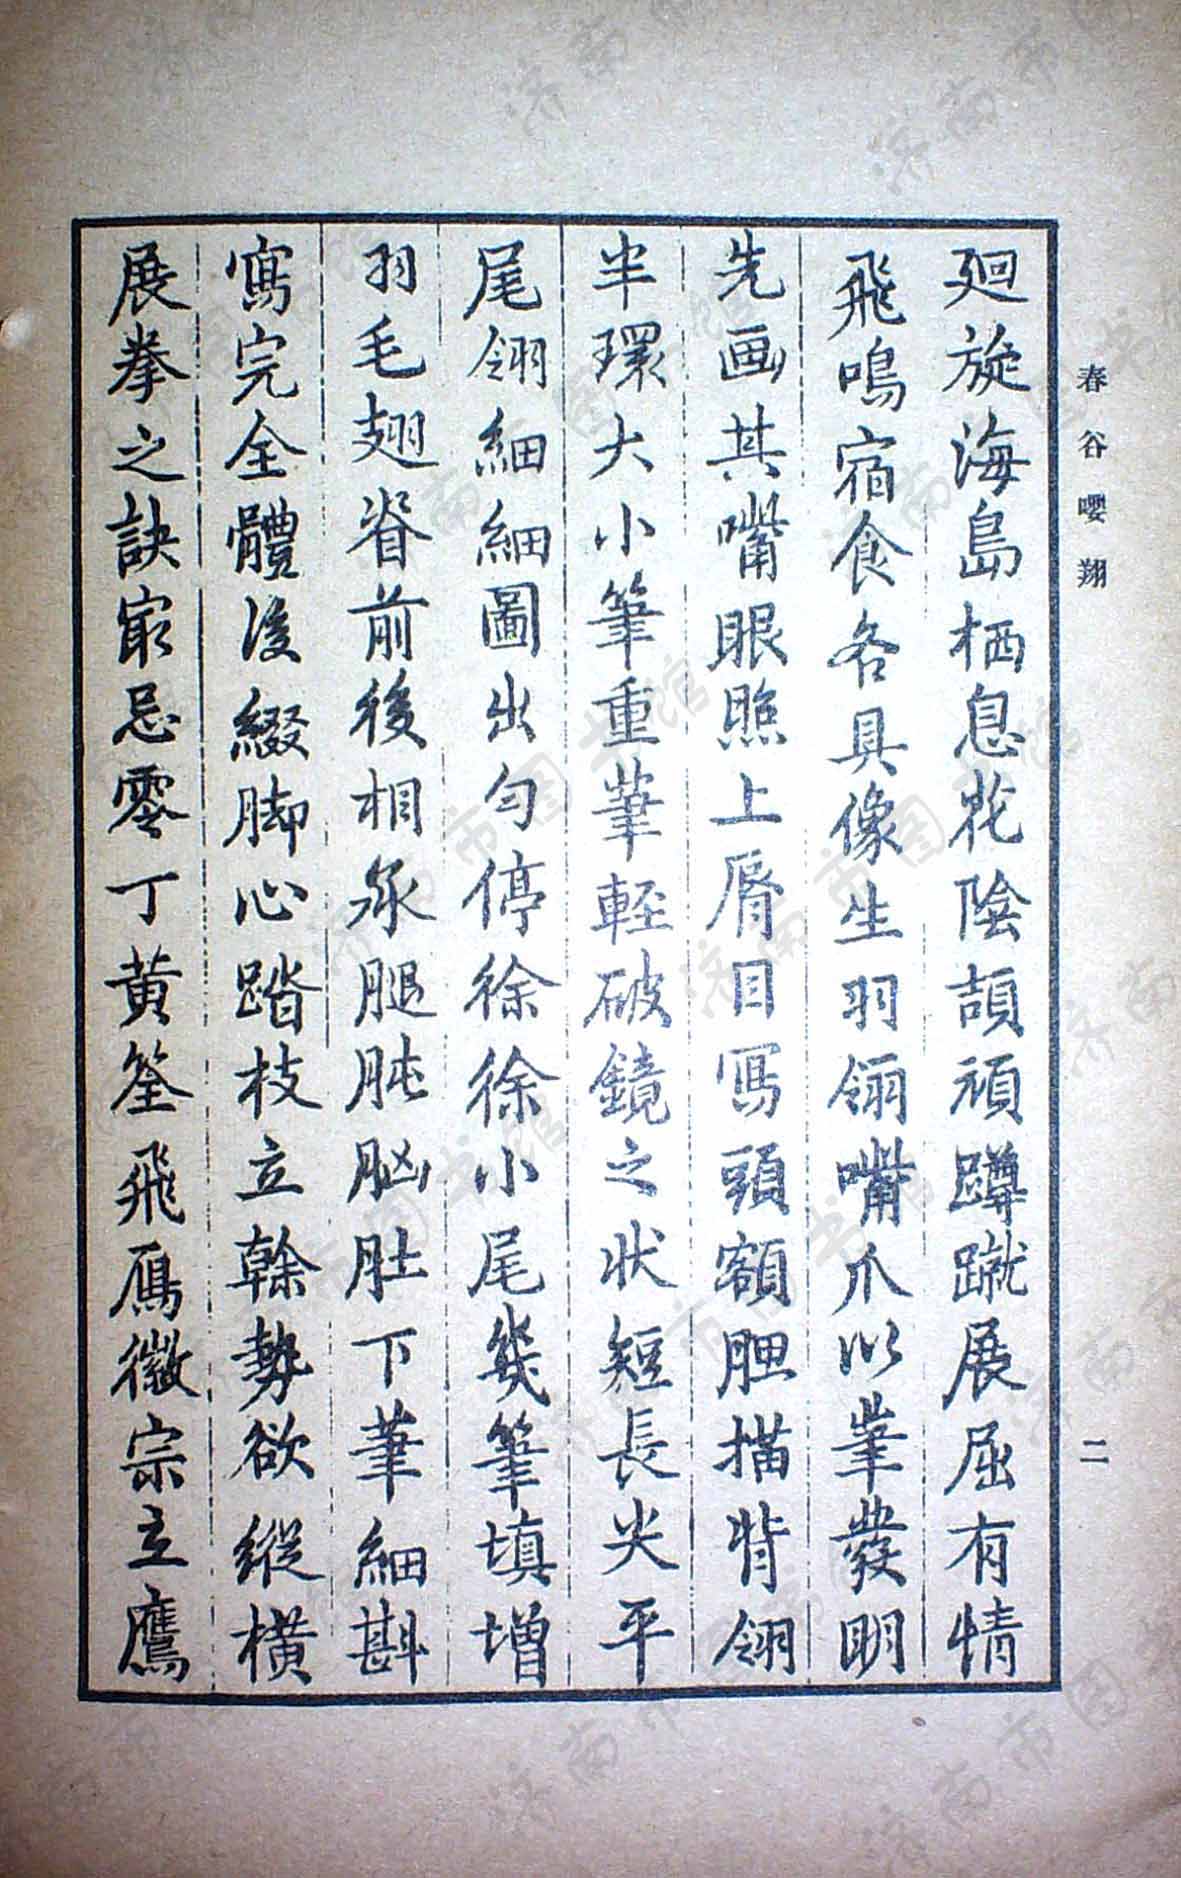 春谷嚶翔
二
廻旋海島栖息花陰頡頏蹲蹴展屈有情
飛鳴宿食各具像生羽翎嘴爪以筆發明
先画其嘴眼照上脣目寫頭額腮描背翎
半環大小筆重筆輕破鏡之狀短長尖平
尾翎細細圖出勻停徐徐小尾幾筆填增
羽毛翅脊前後相承腿肫胸肚下筆細斟
寫完全體後綴脚心踏枝立榦勢欲縱橫
展拳之訣最忌零丁黄筌飛鴈徽宗立鷹
济南市图书馆